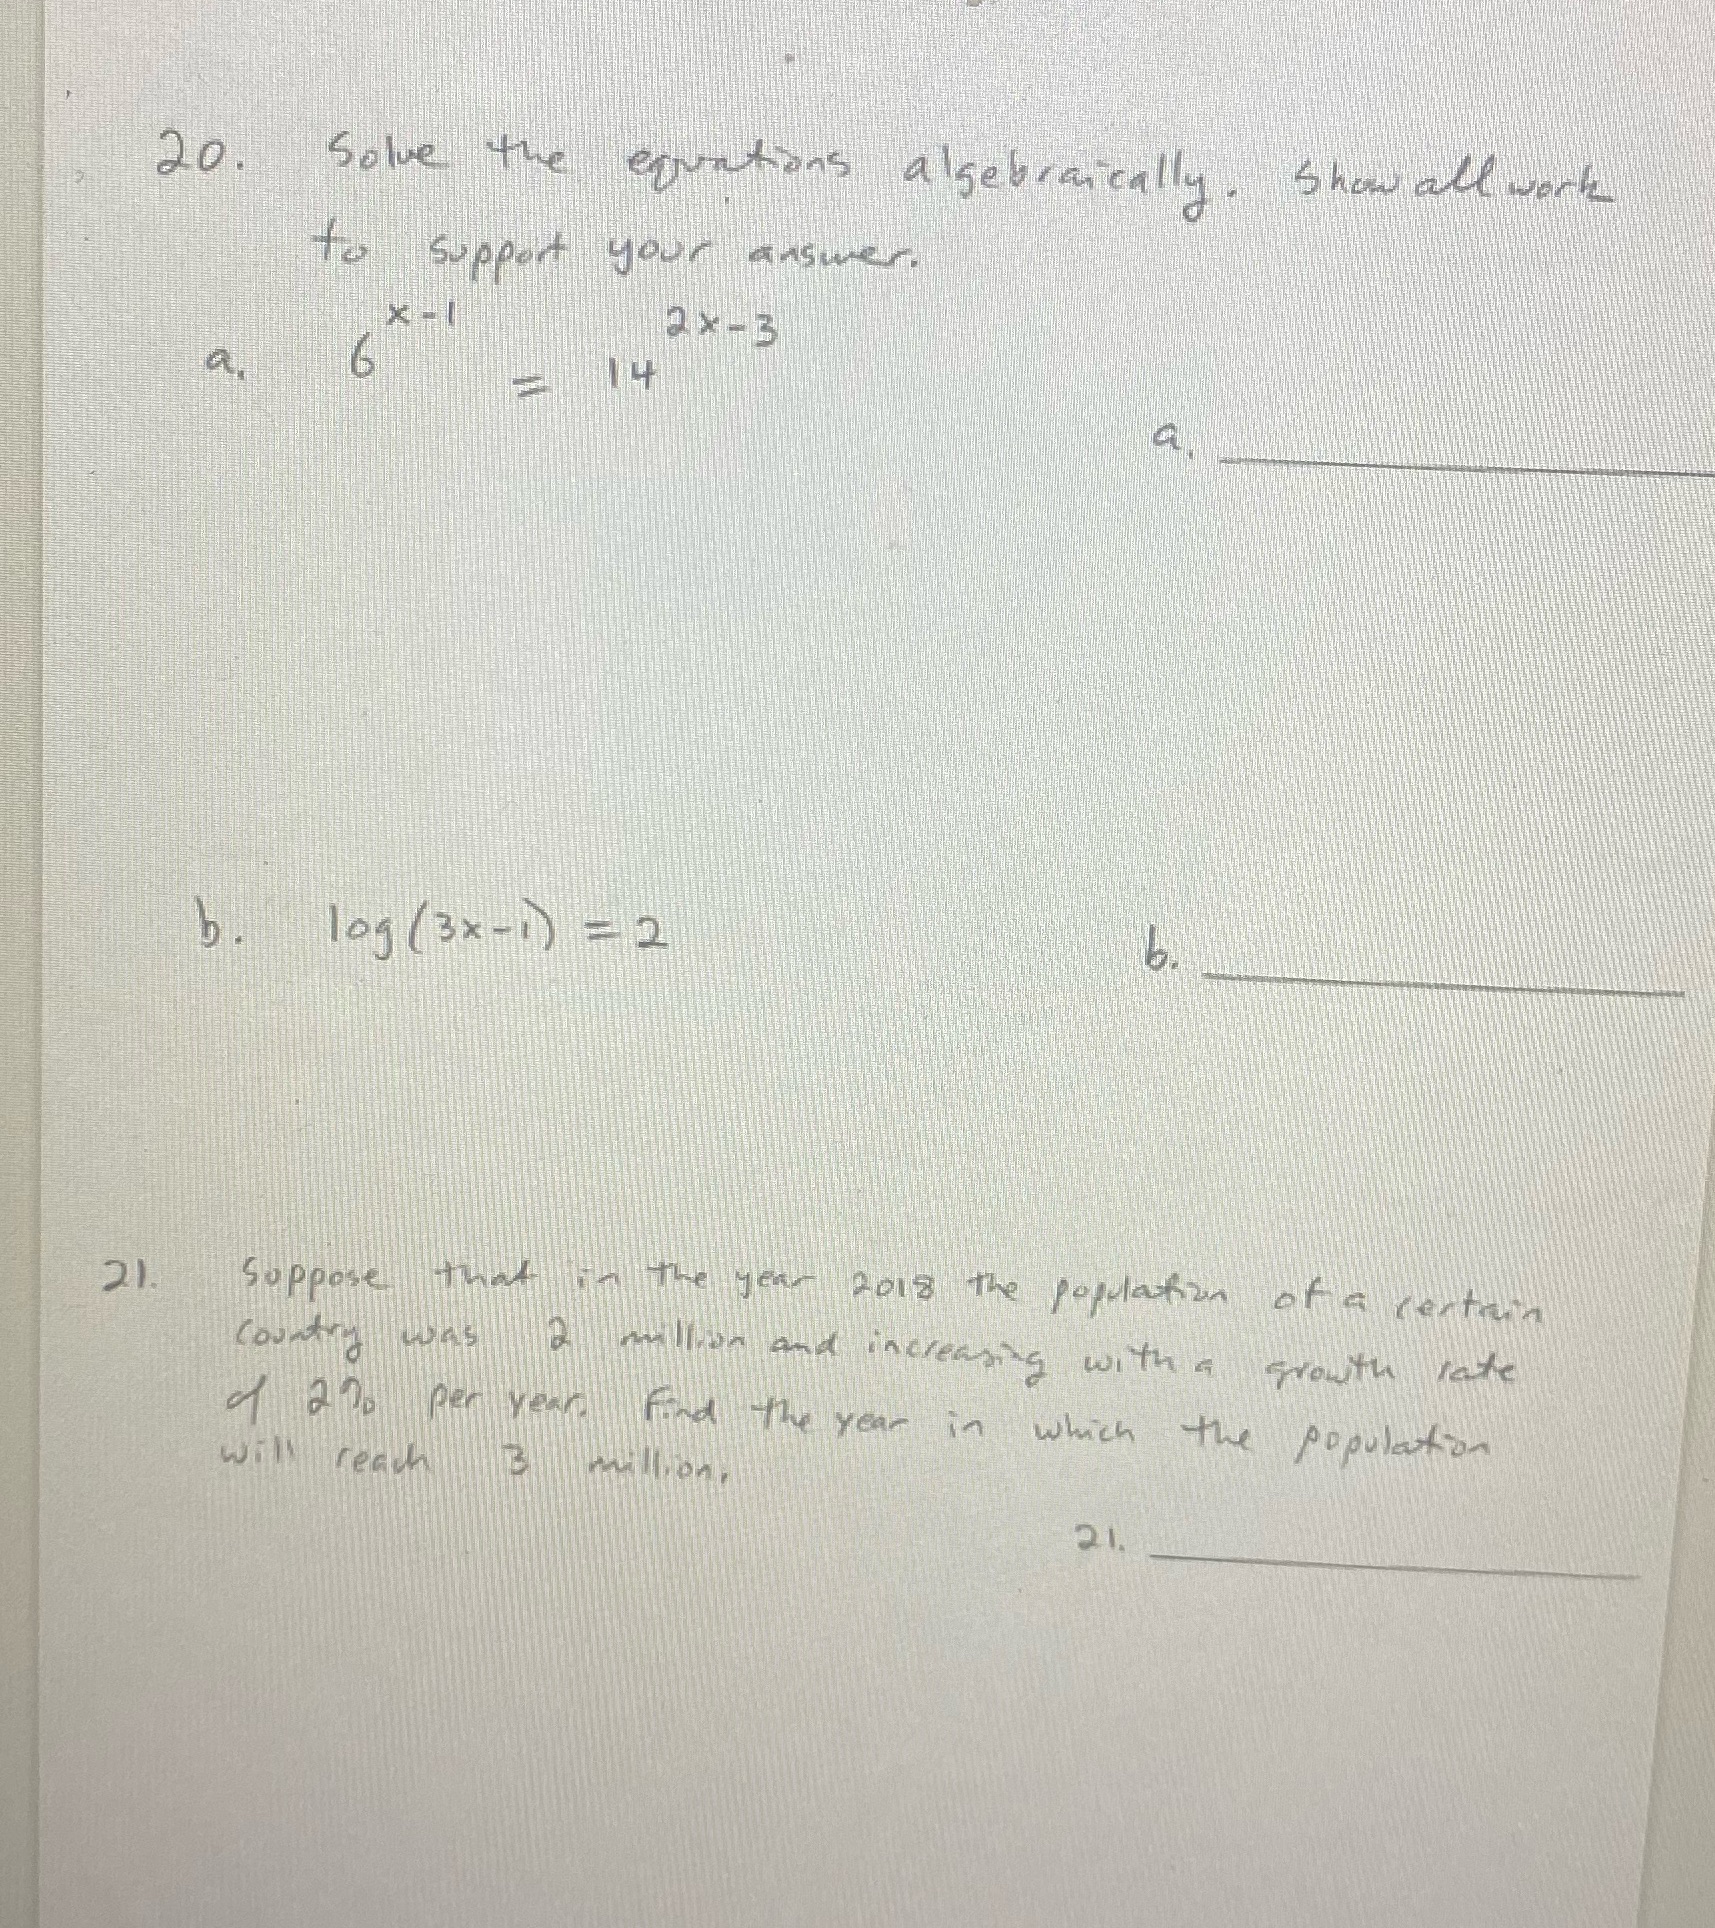 20. Solve the equations algebraically. Show all work
to support your answer.
a. 6^{x-1} = 14^{2x-3}
a. ____
b. log(3x-1) = 2
b. ____
21. Suppose that in the year 2018 the population of a certain
country was 2 million and increasing with a growth rate
of 2% per year. Find the year in which the population
will reach 3 million.
21. ____